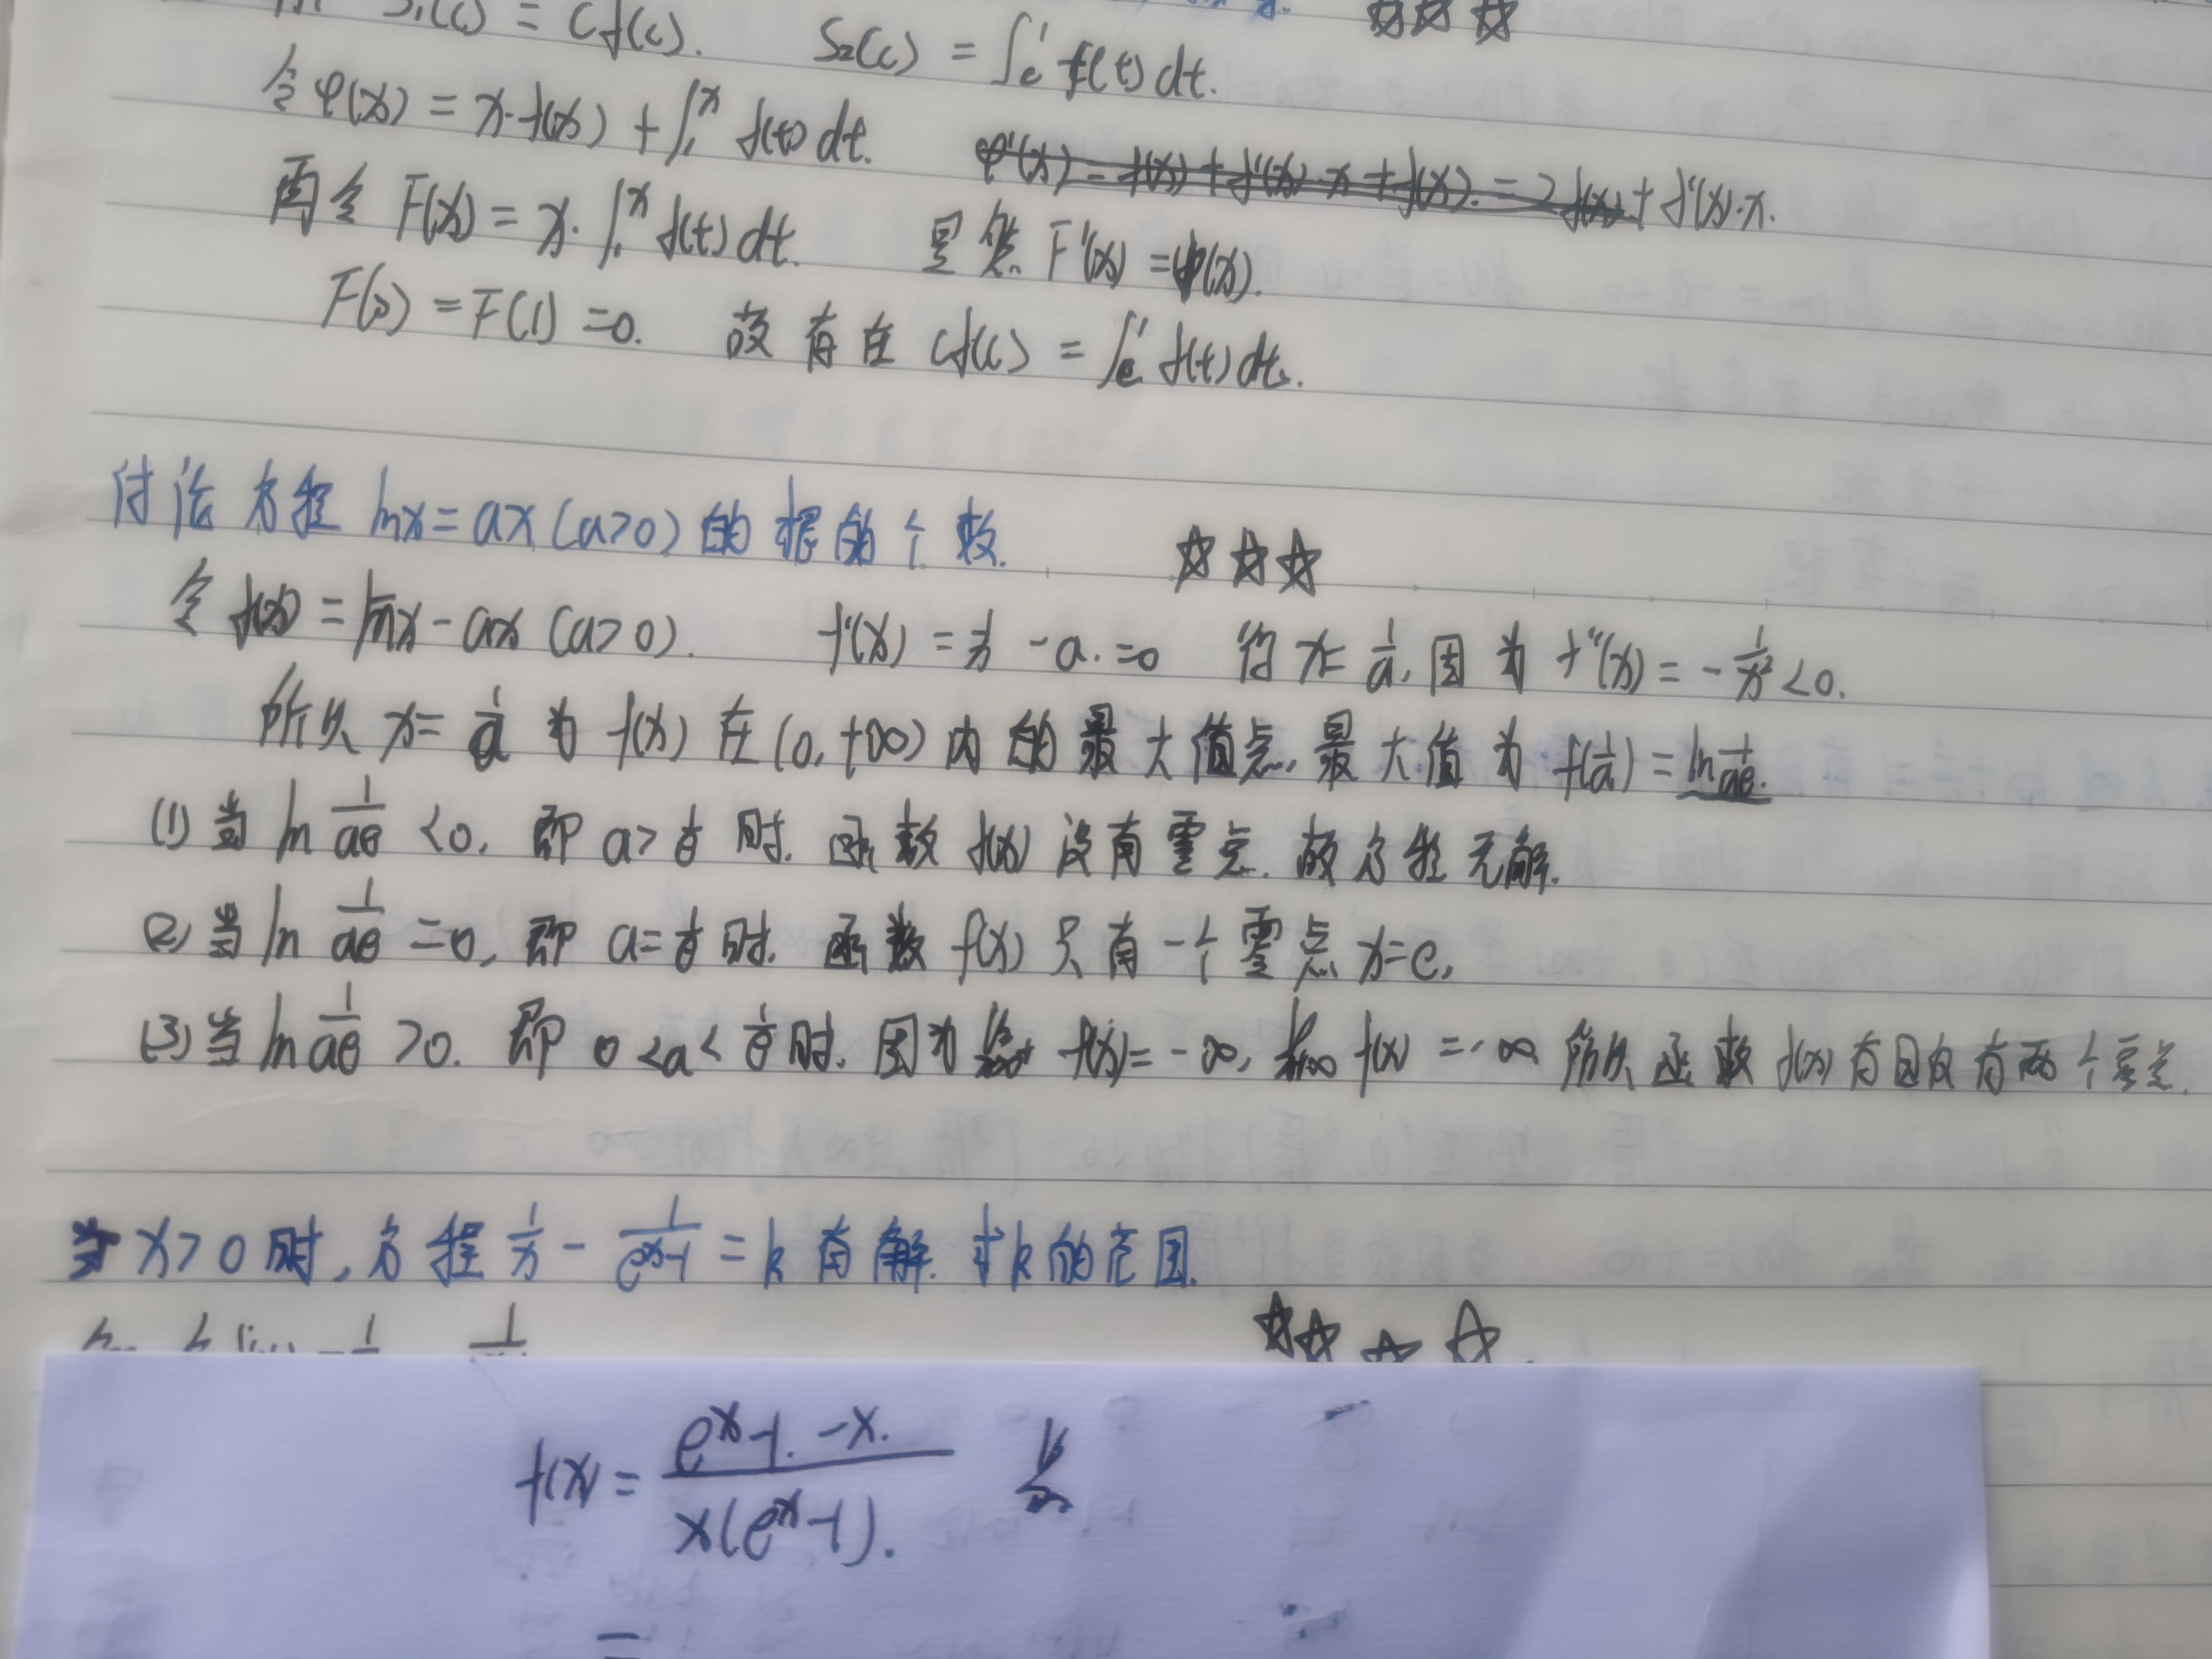 S₁(c) = cf(c). S₂(c) = ∫_c^1 f(t)dt. ☆☆☆
令φ(x) = x·f(x) + ∫_1^x f(t)dt. φ'(x) = f(x) + f'(x)·x + f(x). = 2f(x) + f'(x)·x.
再令 F(x) = x·∫_1^x f(t)dt. 显然 F'(x) = φ(x).
F(0) = F(1) = 0. 故存在 cf(c) = ∫_c^1 f(t)dt.
讨论方程 lnx = ax (a>0) 的根的个数. ☆☆☆
令 f(x) = lnx - ax (a>0). f'(x) = 1/x - a. = 0 得 x = 1/a, 因为 f''(x) = -1/x² < 0.
所以 x = 1/a 为 f(x) 在 (0, +∞) 内的最大值点, 最大值为 f(1/a) = ln 1/ae.
(1) 当 ln 1/ae < 0, 即 a > 1/e 时. 函数 f(x) 没有零点. 故方程无解.
(2) 当 ln 1/ae = 0, 即 a = 1/e 时. 函数 f(x) 只有一个零点 x=e.
(3) 当 ln 1/ae > 0. 即 0 < a < 1/e 时. 因为 f(x) = -∞, f(x) = -∞ 所以函数 f(x) 有且仅有两个零点.
当 x > 0 时, 方程 1/x - 1/(eˣ-1) = k 有解. 求 k 的范围.
☆☆☆☆
f(x) = (eˣ-1.-x.)/(x(eˣ-1).)